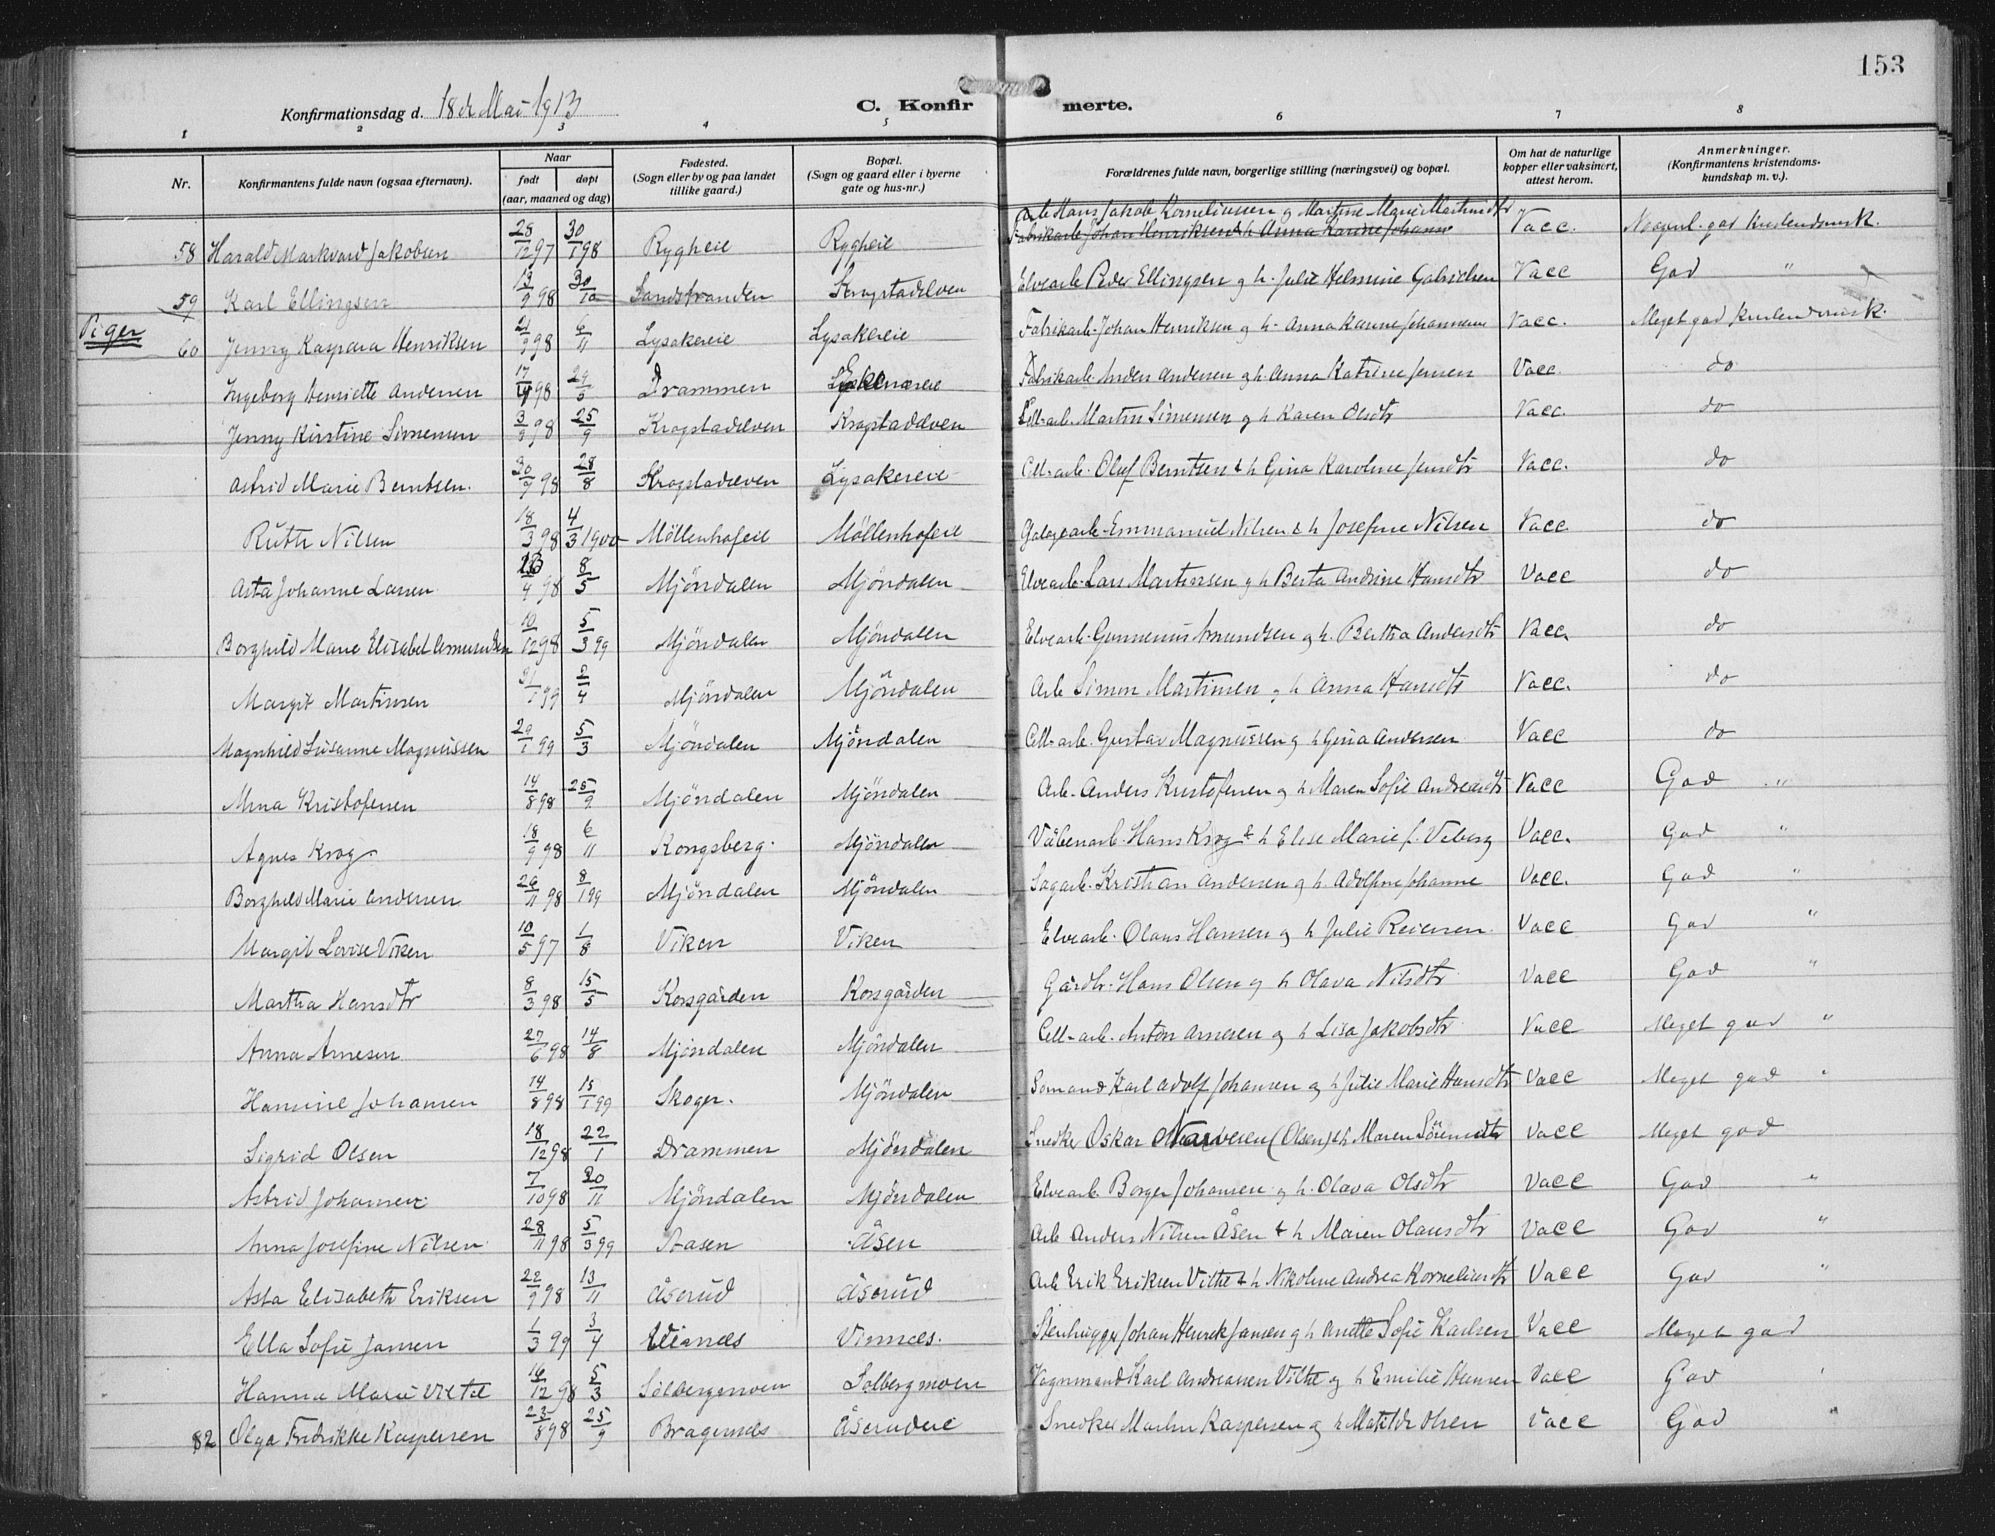 153
Konfirmationsdag d. 18de Mai 1913
C. Konfirmerte.
1 2 3 4 5 6 7 8
Nr. Konfirmantens fulde navn (ogsaa efternavn). Naar født døpt (aar, maaned og dag) Fødested. (Sogn eller by og paa landet tillike gaard.) Bopæl. (Sogn og gaard eller i byerne gate og hus-nr.) Forældrenes fulde navn, borgerlige stilling (næringsvei) og bopæl. Om hat de naturlige kopper eller vaksinert, attest herom. Anmerkninger. (Konfirmantens kristendomskundskap m. v.).
Arb Hans Jakob Korneliussen og Martine Marie Martinsdtr
58 Harald Markvard Jakobsen 28/12 97 30/1 98 Rygheie Rygheie Fabrikarb Johan Henriksen & h Anna Karine Johanns Vacc.
59 Karl Ellingsen 13/9 98 30/10 Sandstranden Krogstadelven Elvearb Peder Ellingsen og h. Julie Helmine Gabrielsen Vacc God "
Piger
60 Jenny Kaspara Henriksen 21/9 98 6/11 Lysakereie Lysakereie Fabrikarb. Johan Henriksen og h. Anna Karine Johannesen Vacc. Meget god
Ingeborg Henriette Andersen 17/4 98 29/5 Drammen Fabrikarb. Anders Andersen og h Anna Katrine Jensen Vacc. do
Jenny Kirstine Simensen 3/8 98 25/9 Krogstadelven Krogstadelven Cell-arb. Martin Simensen og h Karen Olsdtr Vacc. do
Astrid Marie Berntsen. 30/7 98 28/8 Krogstadelven Lysakereie Cell-arb. Oluf Berntsen & h Gina Karoline Jensdtr Vacc. do
Ruth Nilsen 18/3 98 4/3 1900 Møllenhofeie Møllenhofeie Emmanuel Nilsen & h Josefine Nilsen Vacc do
Asta Johanne Larsen 23/4 98 8/5 Mjöndalen Mjöndalen Elvearb. Lars Martinsen og h Berta Andrine Hansdtr Vacc do
Borghild Marie Elisabet Amundsen 10/12 98 5/3 99 Mjöndalen Mjöndalen Elvearb. Gunnerius Amundsen og h. Bertha Andersdtr Vacc. do
Margit Martinsen 31/1 99 2/4 Mjöndalen Mjöndalen Arb Simon Martinsen og h Anna Hansdtr Vacc. do
Magnhild Susanne Magnussen 29/1 99 5/3 Mjöndalen Mjöndalen Cell-arb. Gustav Magnussen og h Gina Andersen Vacc do
Mina Kristofersen 14/8 98 25/9 Mjöndalen Mjöndalen Arb. Anders Kristofersen og h Maren Sofie Andreasdtr Vacc God "
Agnes Krog 18/9 98 6/11 Kongsberg. Mjöndalen Våbenarb. Hans Krog & h Elise Marie f. Viberg Vacc. God "
Borghild Marie Andersen 26/11 98 8/1 99 Mjöndalen Mjöndalen Sagarb. Kristian Andersen og h. Adolfine Johanne Vacc. God "
Margit Lovise Viken 10/5 97 1/8 Viken Viken Elvearb. Olaus Hansen og h Julie Reiersen Vacc God "
Martha Hansdtr 8/3 98 15/5 Korsgården Korsgården Gårdbr. Hans Olsen og h Olava Nilsdtr Vacc God "
Anna Arnesen 27/6 98 14/8 Mjöndalen Mjöndalen Cell-arb. Anton Arnesen og h Lisa Jakobsdtr Vacc Meget god "
Hansine Johansen 14/8 98 15/1 99 Skoger. Mjöndalen Sömand Karl Adolf Johansen og h Julie Marie Hansdtr Vacc Meget god "
Sigrid Olsen 18/12 98 22/1 Drammen Mjöndalen Snedker Oskar Narvesen (Olsen) & h Maren Sörensdtr Vacc Meget god
Astrid Johansen 7/10 98 20/11 Mjöndalen Mjöndalen Elvearb. Borger Johansen og h. Olava Olsdtr Vacc God "
Anna Josefine Nilsen 28/11 98 5/3 99 Aasen Åsen Arb Anders Nilsen Åsen & h Maren Olausdtr Vacc God "
Asta Elisabeth Eriksen 22/9 98 13/11 Åserud Åserud Arb Erik Eriksen Viltil & h Nikoline Andrea Korneliusdtr Vacc God "
Ella Sofie Jansen 1/3 99 3/4 Vinnæs. Stenhugger Johan Henrik Jansen og h Anette Sofie Karlsen Vacc Meget god
Hanna Marie Viltil 16/12 98 5/3 Solbergmoen Solbergmoen Vognmand Karl Andreassen Viltil og h Emilie Hansen Vacc God "
82 Olga Fredrikke Kaspersen 23/8 98 25/9 Bragernes Åserudeie Snedker Martin Kaspersen og h Matilde Olsen Vacc God "